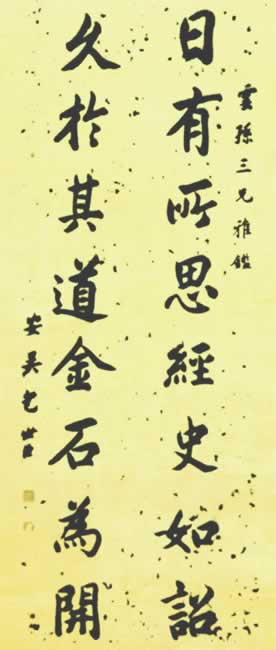 雲孫三兄雅鑑
日有所思經史如詔
久於其道金石為開
安吳包世臣